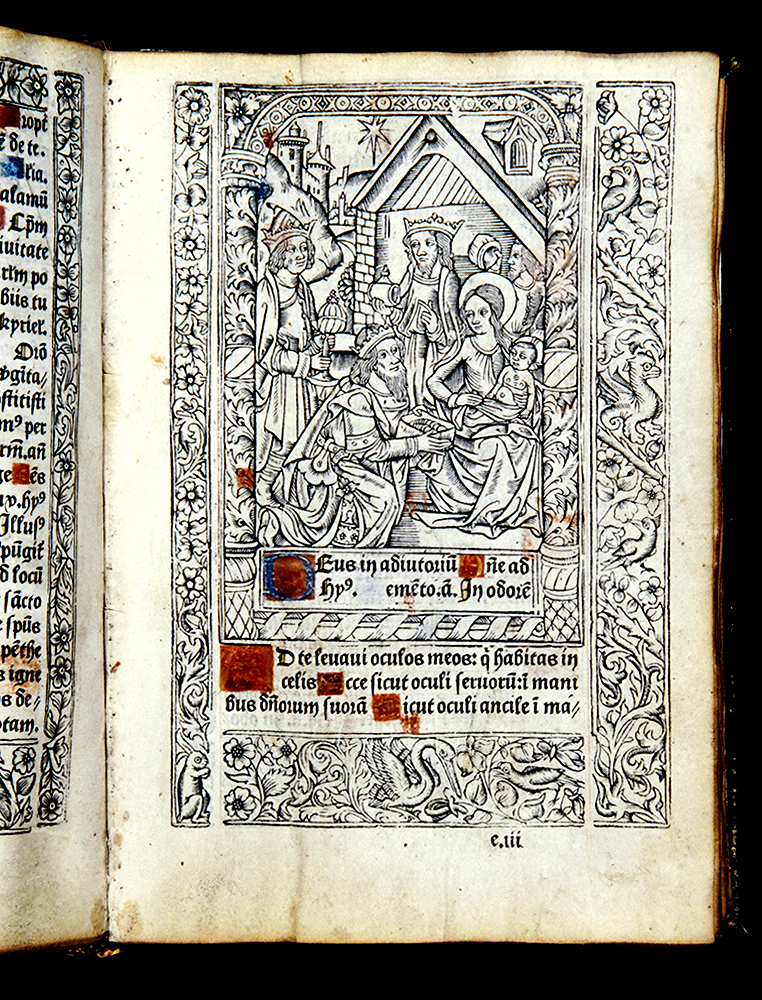 ropt
de te.
ria.
alamū
Lp̄m
iuitate
po
biis tu
kyriel.
Orō
ogita/
ostitisti
m⁹ per
rm̄.an̄
ge ēs
v.hy⁹
Illus⁹
pūgit̄
d locū
sācto
e spūs
pēthe
s igne
os de/
otam.
Eus in adiutoriū ñe ad
Hy⁹. emēto.ā. In odorē
D te leuaui oculos meos: q̄ habitas in
celis cce sicut oculi seruorū: ī mani
bus dn̄orum suorū icut oculi ancile ī ma/
e.iii